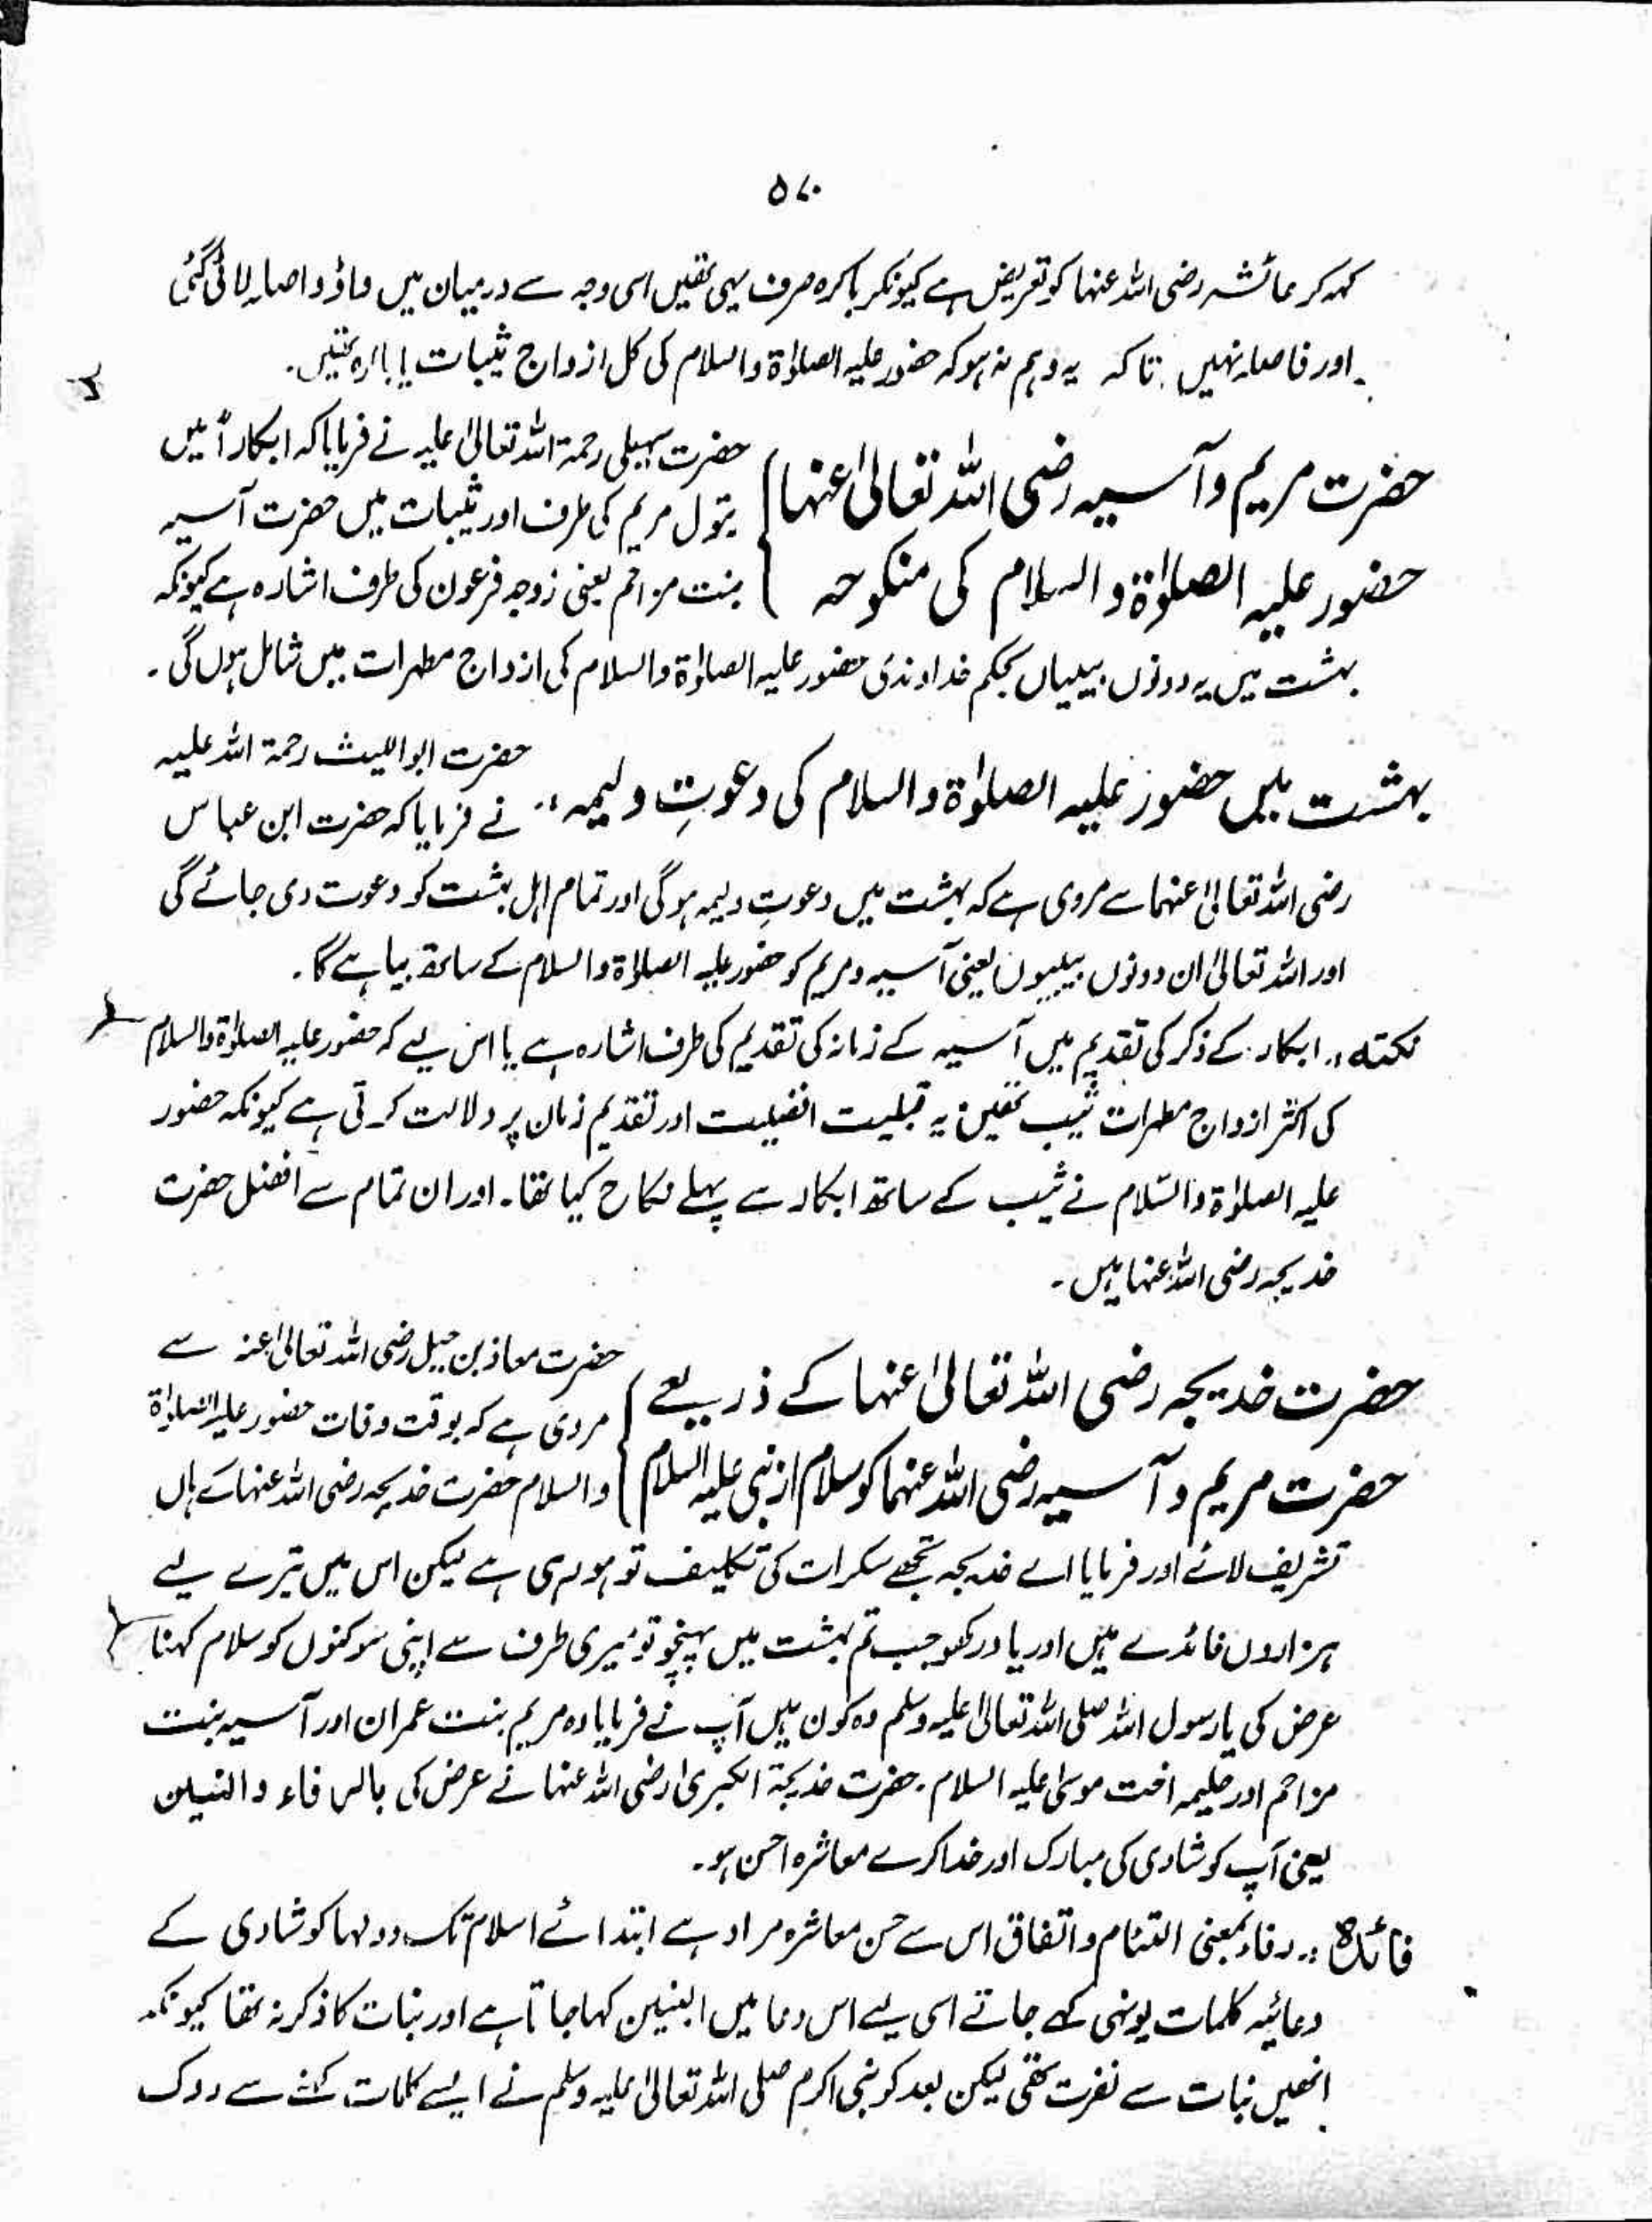 ۵۷۰
کہہ کر عائشہ رضی اللہ عنہا کو تعریض ہے کیونکر باکرہ صرف یہی تھیں اسی وجہ سے درمیان میں واؤ واصلہ لائی گئی
اور فاصلہ نہیں تاکہ یہ وہم نہ ہو کہ حضور علیہ الصلوٰۃ والسلام کی کل ازواج ثیبات یا باکرہ تھیں۔
حضرت مریم و آسیہ رضی اللہ تعالیٰ عنہا
حضور علیہ الصلوٰۃ والسلام کی منکوحہ
حضرت سہیلی رحمۃ اللہ تعالیٰ علیہ نے فرمایا کہ ابکاراً میں
بتول مریم کی طرف اور ثیبات میں حضرت آسیہ
بنت مزاحم یعنی زوجہ فرعون کی طرف اشارہ ہے کیونکہ
بہشت میں یہ دونوں بیبیاں بحکم خداوندی حضور علیہ الصلوٰۃ والسلام کی ازواج مطہرات میں شامل ہوں گی۔
بہشت میں حضور علیہ الصلوٰۃ والسلام کی دعوتِ ولیمہ :۔
حضرت ابو اللیث رحمۃ اللہ علیہ
نے فرمایا کہ حضرت ابن عباس
رضی اللہ تعالیٰ عنہما سے مروی ہے کہ بہشت میں دعوتِ ولیمہ ہوگی اور تمام اہل بہشت کو دعوت دی جائے گی
اور اللہ تعالیٰ ان دونوں بیبیوں یعنی آسیہ و مریم کو حضور علیہ الصلوٰۃ والسلام کے ساتھ بیاہے گا۔
نکتہ :۔ ابکار کے ذکر کی تقدیم میں آسیہ کے زمانہ کی تقدیم کی طرف اشارہ ہے یا اس لیے کہ حضور علیہ الصلوٰۃ والسلام
کی اکثر ازواج مطہرات ثیب تھیں یہ قبلیت افضلیت اور تقدیم زمان پر دلالت کرتی ہے کیونکہ حضور
علیہ الصلوٰۃ والسّلام نے ثیب کے ساتھ ابکار سے پہلے نکاح کیا تھا۔ اور ان تمام سے افضل حضرت
خدیجہ رضی اللہ عنہا ہیں۔
حضرت خدیجہ رضی اللہ تعالیٰ عنہا کے ذریعے
حضرت مریم و آسیہ رضی اللہ عنہما کو سلام از نبی علیہ السلام
حضرت معاذ بن جبل رضی اللہ تعالیٰ عنہ سے
مروی ہے کہ بوقت وفات حضور علیہ الصلوٰۃ
والسلام حضرت خدیجہ رضی اللہ عنہا کے ہاں
تشریف لائے اور فرمایا اے خدیجہ تجھے سکرات کی تکلیف تو ہو رہی ہے لیکن اس میں تیرے لیے
ہزاروں فائدے ہیں اور یاد رکھو جب تم بہشت میں پہنچو تو میری طرف سے اپنی سوکنوں کو سلام کہنا
عرض کی یا رسول اللہ صلی اللہ تعالیٰ علیہ وسلم وہ کون ہیں آپ نے فرمایا وہ مریم بنت عمران اور آسیہ بنت
مزاحم اور حلیمہ اخت موسیٰ علیہ السلام۔ حضرت خدیجۃ الکبریٰ رضی اللہ عنہا نے عرض کی بالرفاء والبنین
یعنی آپ کو شادی کی مبارک اور خدا کرے معاشرہ احسن ہو۔
فائدہ :۔ رفاء بمعنی التئام و اتفاق اس سے حسن معاشرہ مراد ہے ابتدائے اسلام تک دولہا کو شادی کے
دعائیہ کلمات یونہی کہے جاتے اسی لیے اس دعا میں البنین کہا جاتا ہے اور بنات کا ذکر نہ تھا کیونکہ
انھیں بنات سے نفرت تھی لیکن بعد کو نبی اکرم صلی اللہ تعالیٰ علیہ وسلم نے ایسے کلمات کہنے سے روک